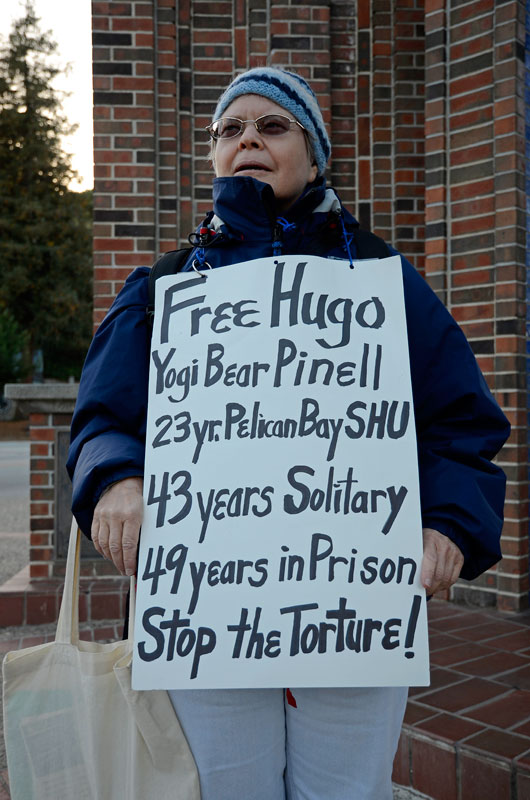 Free Hugo
Yogi Bear Pinell
23yr. Pelican Bay SHU
43 years Solitary
49 years in Prison
Stop the Torture!